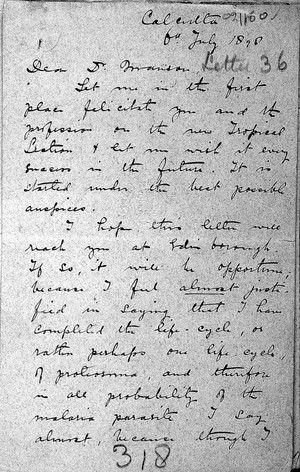 Calcutta 02/160
6th July 1898
Dear Dr. Manson, Letter 36
Let me in the first
place felicitate you and the
profession on the new Tropical
Section & let me wish it every
success in the future. It is
started under the best possible
auspices.
I hope this letter will
reach you at Edinborough.
If so, it will be opportune,
because I feel almost justi-
fied in saying that I have
completed the life-cycle, or
rather perhaps one life cycle,
of proteosoma, and therefore
in all probability of the
malaria parasite. I say
almost, because though I
318